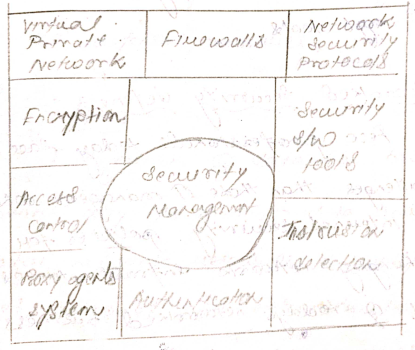 Virtual
Private
Network
Firewalls
Network
Security
Protocols
Encryption
Security
S/W
tools
Security
Management
Access
Control
Instrusion
detection
Proxy agents
system
Authentication